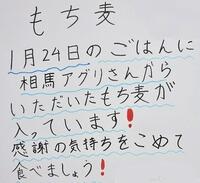 もち麦
1月24日のごはんに
相馬アグリさんから
いただいたもち麦が
入っています！
感謝の気持ちをこめて
食べましょう！